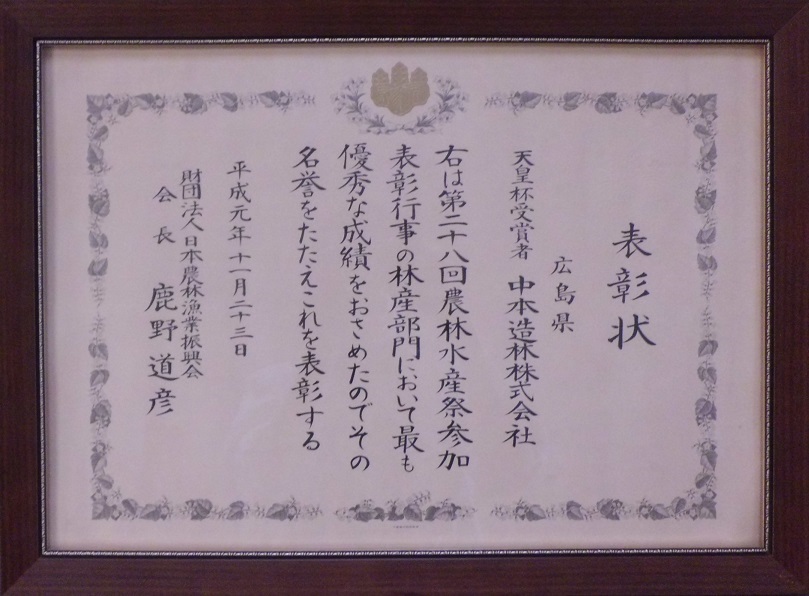 表彰状
広島県
天皇杯受賞者 中本造林株式会社
右は第二十八回農林水産祭参加
表彰行事の林産部門において最も
優秀な成績をおさめたのでその
名誉をたたえこれを表彰する
平成元年十一月二十三日
財団法人日本農林漁業振興会
会長 鹿野道彦